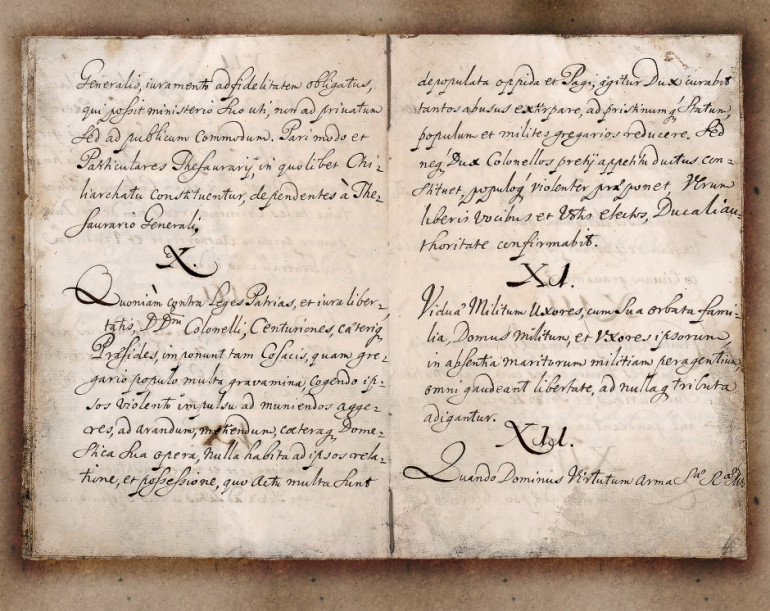 Generalis, iuramento ad fidelitatem obligatus,
qui possit ministerio suo uti, non ad privatum
sed ad publicum commodum. Pari modo et
Particulares Thesaurarij, in quolibet Chi-
liarchatu constituentur, dependentes à The-
saurario Generali,
X
Quoniàm contra Leges Patrias, et iura liber-
tatis, D.Dni Colonelli, Centuriones, cæteriq
Præsides, imponunt tam Cosacis, quam gre-
gario populo multa gravamina, cogendo ip-
sos violento impulsu ad muniendos agge-
res, ad arandum, metendum, cæteraq Dome-
stica sua opera, nulla habita ad ipsos rela-
tione, et possessione, quo actu multa sunt
depopulata oppida et Pagi, igitur Dux curabit
tantos abusus extirpare, ad pristinumq Statum
populum et milites gregarios reducere. Sed
neq Dux Colonellos pretij appetitu ductus con-
stituet, populoq violenter præponet, Verum
liberis vocibus et Votis electos, Ducali au-
thoritate confirmabit.
XI.
Viduæ Militum Uxores, cum sua orbata fami-
lia, Domus militum, et Uxores ipsorum,
in absentia maritorum militiam peragentium,
omni gaudeant libertate, ad nullaq tributa
adigantur.
XII.
Quando Dominus Virtutum Arma